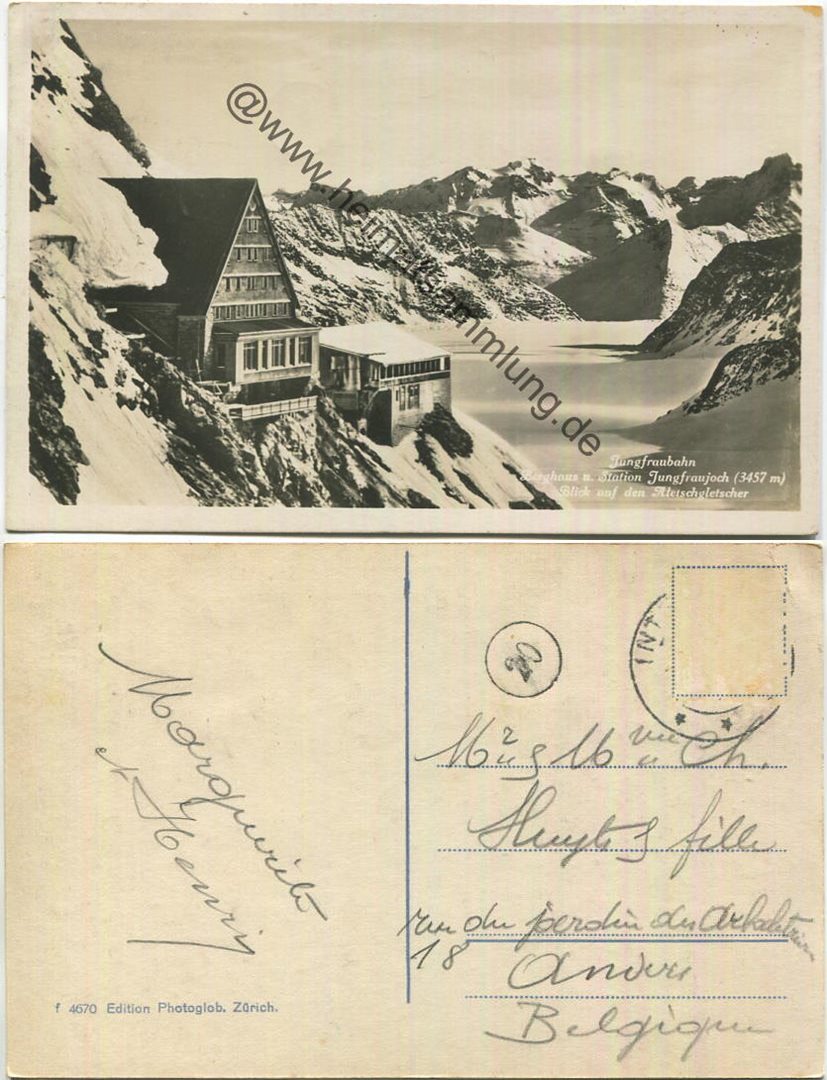 @www.heimatsammlung.de
Jungfraubahn
Berghaus u. Station Jungfraujoch (3457 m)
Blick auf den Aletschgletscher
INT
Marguerite
et Henri
Mr & Mme Ch.
Huyts & fille
rue du jardin des Arbalétriers
18
Anvers
Belgique
f 4670 Edition Photoglob. Zürich.